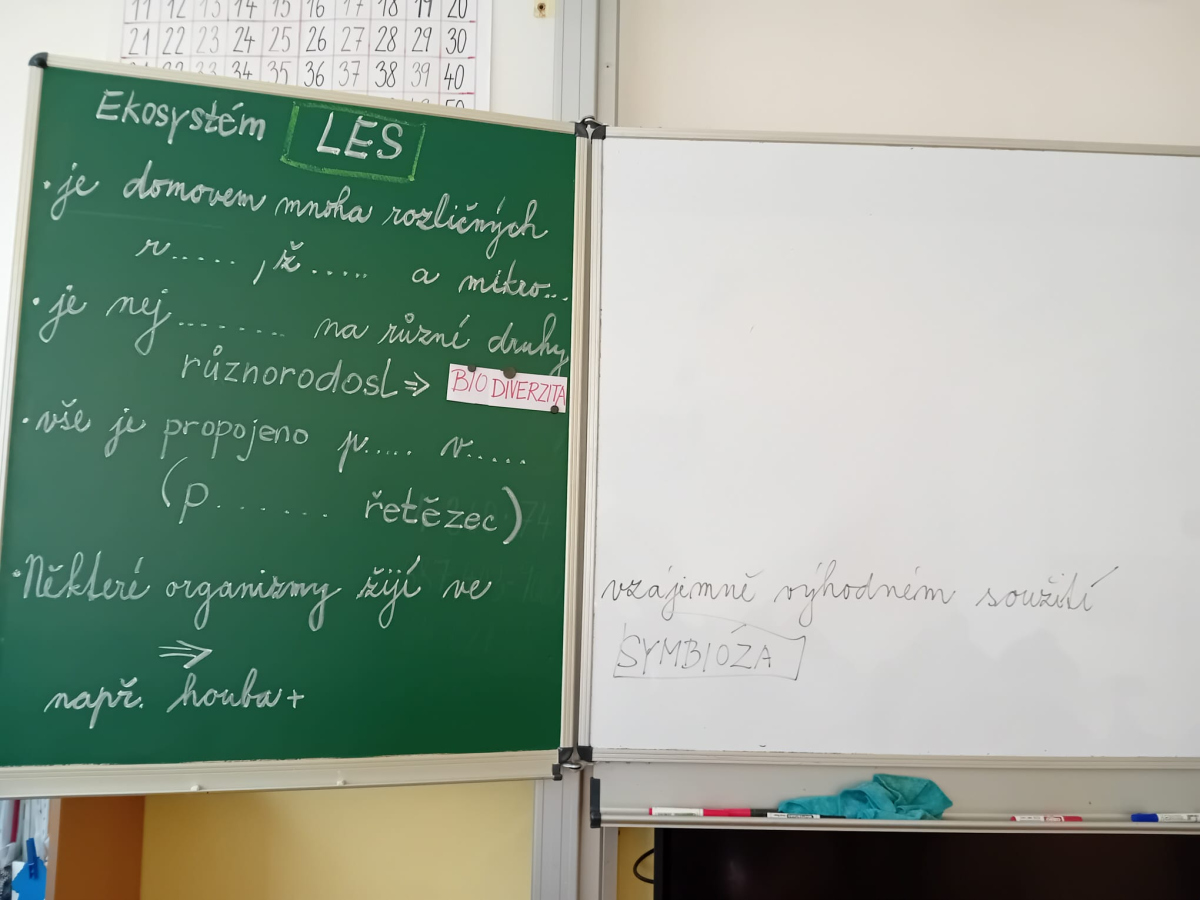 11 12 13 14 15 16 17 18 19 20
21 22 23 24 25 26 27 28 29 30
33 34 35 36 37 38 39 40
50
Ekosystém LES
• je domovem mnoha rozličných
r..... , ž ..... a mikro...
• je nej ........ na různé druhy
různorodost ⇒ BIODIVERZITA
• vše je propojeno p..... v.....
(p ....... řetězec)
• Některé organizmy žijí ve vzájemně výhodném soužití
⇒ SYMBIÓZA
např. houba +